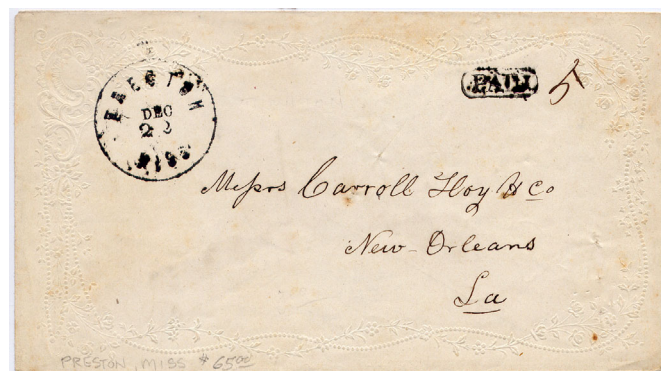 PRESTON
DEC
22
MISS
PAID
5
Messrs Carroll Hoy & Co
New-Orleans
La
PRESTON, MISS $65.00